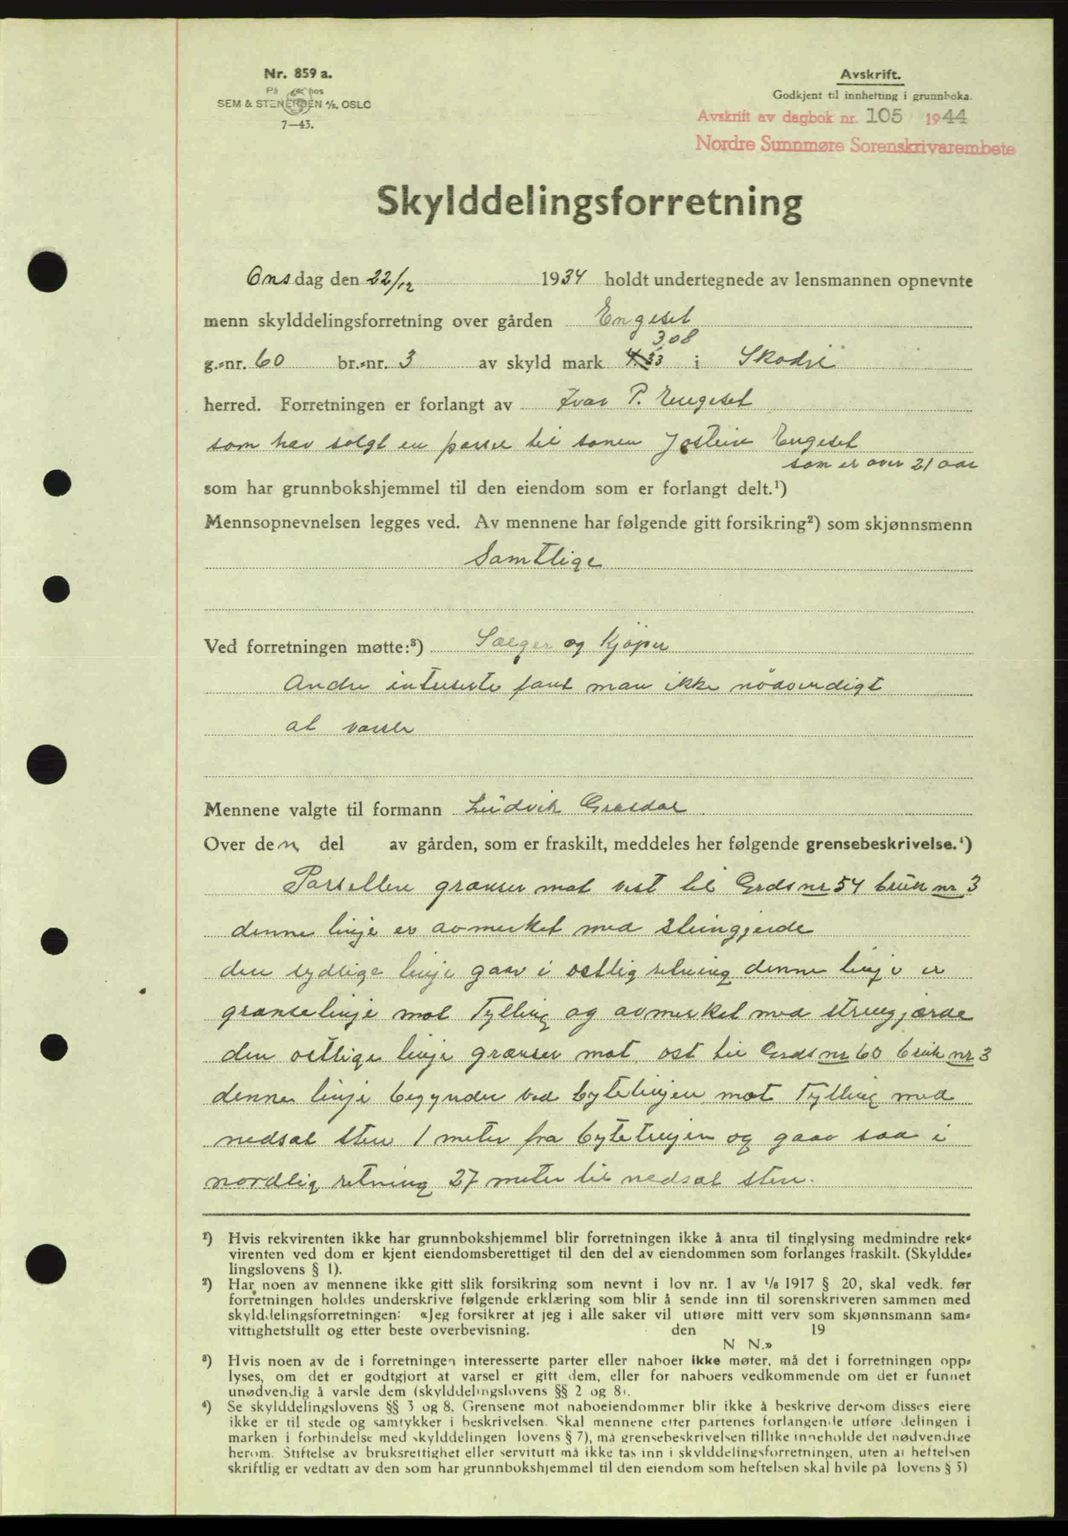 Nr. 859 a.
SEM & STENERSEN A/S, OSLO
7—43.
Avskrift.
Godkjent til innhefting i grunnboka.
Avskrift av dagbok nr. 105 1944
Nordre Sunnmøre Sorenskrivarembete
Skylddelingsforretning
Onsdag den 22/12 1934 holdt undertegnede av lensmannen opnevnte
menn skylddelingsforretning over gården Engeset
3,08
g.-nr. 60 br.-nr. 3 av skyld mark 4.33 i Skodje
herred. Forretningen er forlangt av Ivar P. Engeset
som har solgt en parsel til sønen Jostein Engeset
som er over 21 aar
som har grunnbokshjemmel til den eiendom som er forlangt delt.¹)
Mennsopnevnelsen legges ved. Av mennene har følgende gitt forsikring²) som skjønnsmenn
Samtlige
Ved forretningen møtte:³) Sælger og Kjøper
Andre interserte fant man ikke nödvendigt
at varsle
Mennene valgte til formann Ludvik Grasdal
Over den del av gården, som er fraskilt, meddeles her følgende grensebeskrivelse.⁴)
Parsellen grænser mot vest til Grds nr 54 bruk nr 3
denne linje er avmerket med steingjerde
den sydlige linje gaar i ostlig retning denne linje er
grænselinje mot Tylling og avmerket med steingjærde
den ostlige linje grænser mot ost til Grds nr 60 bruk nr 3
denne linje begynder ved bytelinjen mot Tylling med
nedsat sten 1 meter fra bytelinjen og gaar saa i
nordlig retning 27 meter til nedsat sten.
¹) Hvis rekvirenten ikke har grunnbokshjemmel blir forretningen ikke å anta til tinglysing medmindre rek-
virenten ved dom er kjent eiendomsberettiget til den del av eiendommen som forlanges fraskilt. (Skyldde-
lingslovens § 1).
²) Har noen av mennene ikke gitt slik forsikring som nevnt i lov nr. 1 av 1/6 1917 § 20, skal vedk. før
forretningen holdes underskrive følgende erklæring som blir å sende inn til sorenskriveren sammen med
skylddelingsforretningen: «Jeg forsikrer at jeg i alle saker vil utføre mitt verv som skjønnsmann sam-
vittighetsfullt og etter beste overbevisning. den 19
N N.»
³) Hvis noen av de i forretningen interesserte parter eller naboer ikke møter, må det i forretningen opp-
lyses, om det er godtgjort at varsel er gitt dem, eller for naboers vedkommende om det er funnet
unødvendig å varsle dem (skylddelingslovens §§ 2 og 8).
⁴) Se skylddelingslovens §§ 3 og 8. Grensene mot naboeiendommer blir ikke å beskrive dersom disses eiere
ikke er til stede og samtykker i beskrivelsen. Skal mennene etter partenes forlangende utføre delingen i
marken i forbindelse med skylddelingen lovens § 7), må grensebeskrivelsen tillike inneholde det nødvendige
herom. Stiftelse av bruksrettighet eller servitutt må ikke tas inn i skylddelingsforretningen, uten at heftelsen
skriftlig er vedtatt av den som har grunnbokshjemmel til den eiendom som heftelsen skal hvile på lovens § 5)